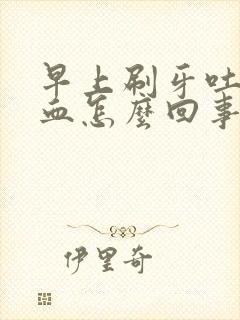 早上刷牙吐
血怎麼回事
伊里奇